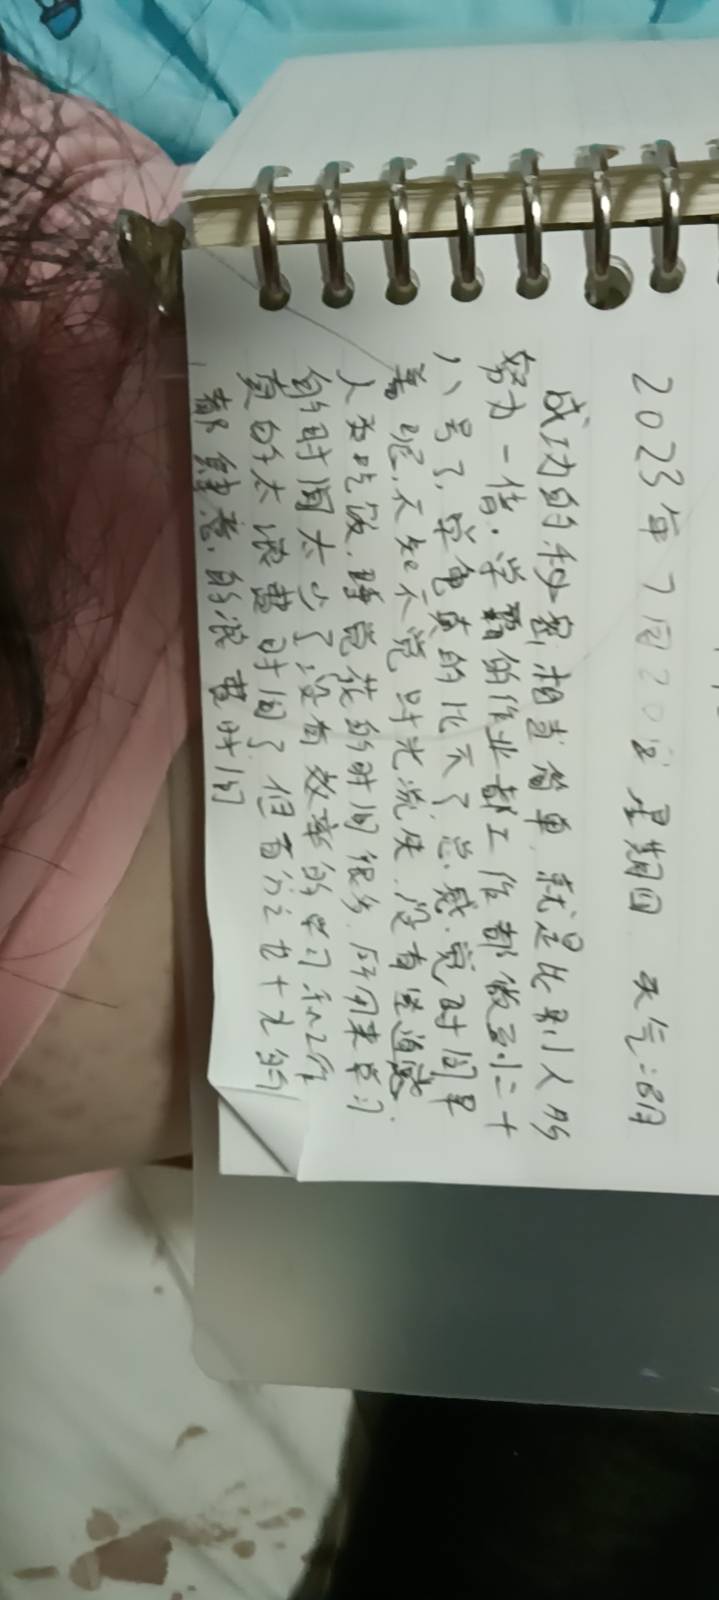 2023年7月20日 星期四 天气:明
成功的秘密,相当简单,就是比别人多
努力一倍。学霸的作业都工作都做到二十
八号了,学电真的比不了,总感觉时间早
着呢,不知不觉时光流失,没有坚道感.
人为吃饭,睡觉花的时间很多,所用来学习
的时间太少了,没有效率的学习和工作
真的太浪费时间了,但百分之九十九的
都是在愿意的浪费时间